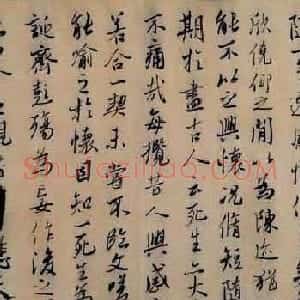 隨事遷感慨係
欣俛仰之間以為陳迹猶
能不以之興懷況脩短隨
期於盡古人云死生亦大
不痛哉每攬昔人興感
若合一契未嘗不臨文嗟
能喻之於懷固知一死生為
誕齊彭殤為妄作後之